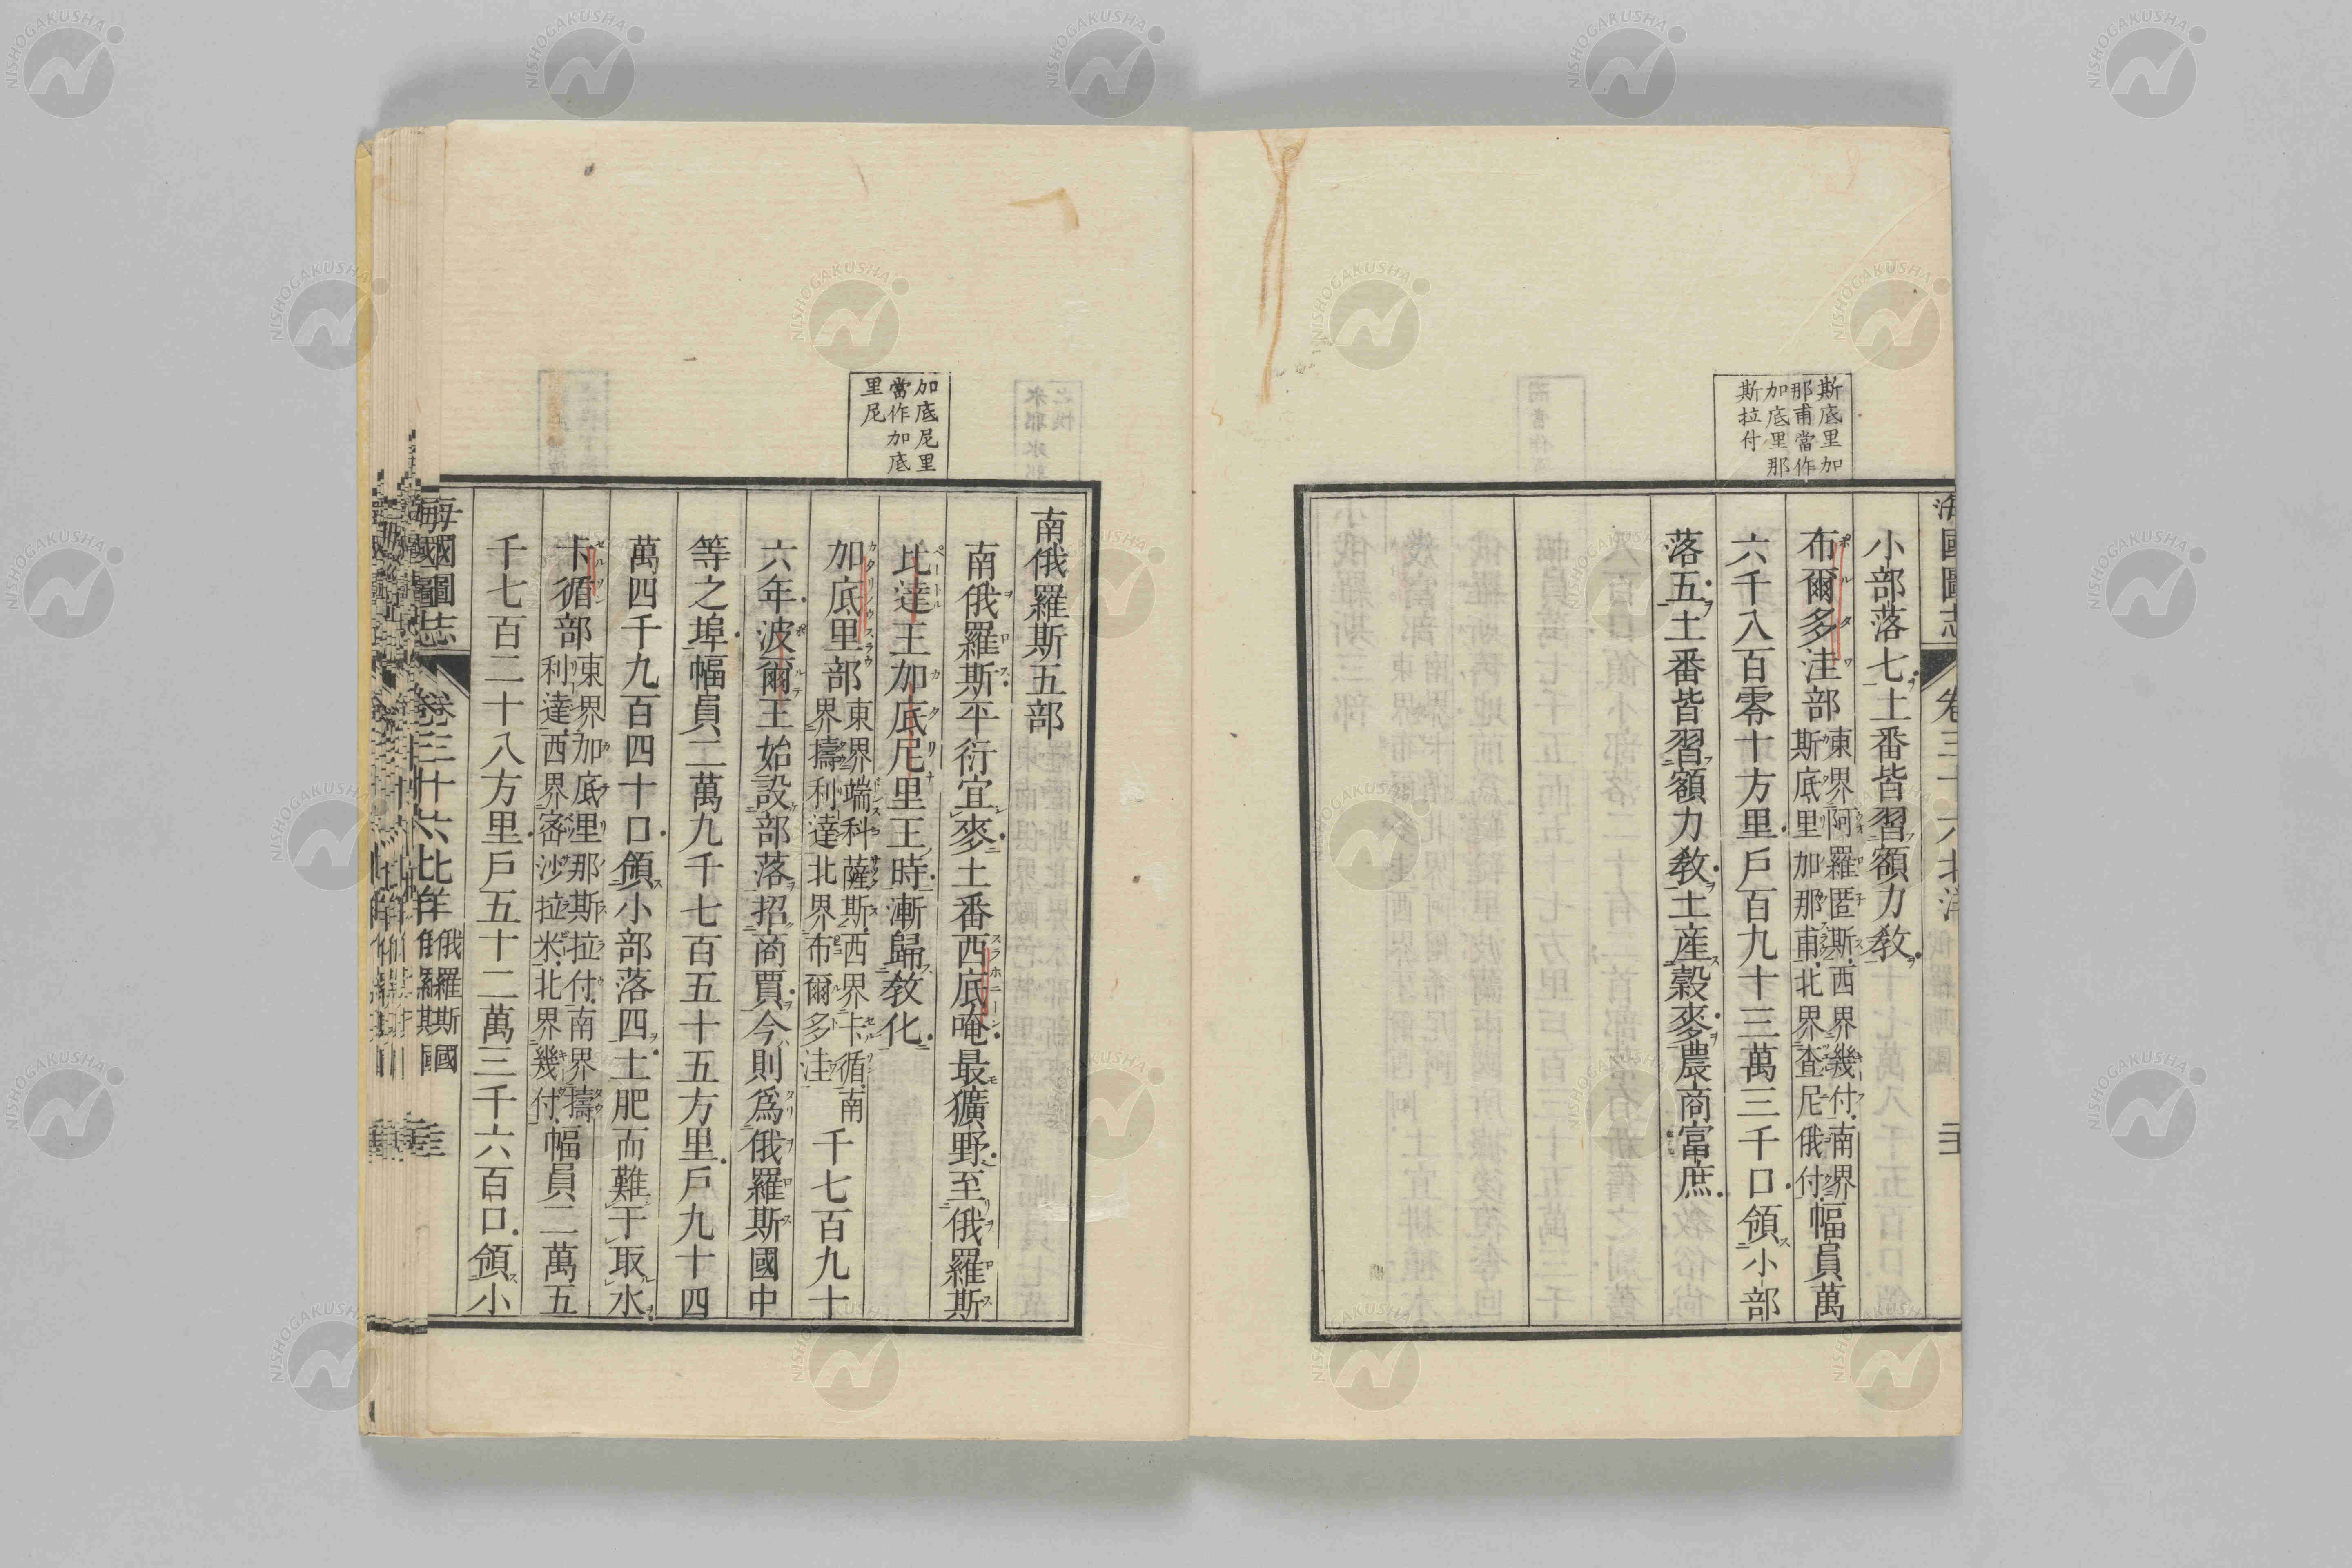 斯底里加
那甫當作
加底里那
斯拉付
小部落七土番皆習額力教
布爾多洼部東界阿羅匿斯西界幾付南界
斯底里加那甫北界查尼俄付幅員萬
六千八百零十方里戶百九十三萬三千口領小部
落五土番皆習額力教土產穀麥農商富庶
加底尼里
當作加底
里尼
南俄羅斯五部
南俄羅斯平衍宜麥土番西底唵最獷野至俄羅斯
比達王加底尼里王時漸歸教化
加底里部東界端科薩斯西界卡循南
界擣利達北界布爾多洼千七百九十
六年波爾王始設部落招商賈今則爲俄羅斯國中
等之埠幅員二萬九千七百五十五方里戶九十四
萬四千九百四十口領小部落四土肥而難于取水
卡循部東界加底里那斯拉付南界擣
利達西界密沙拉米北界幾付幅員二萬五
千七百二十八方里戶五十二萬三千六百口領小
海國圖志 卷三十六 北洋 俄羅斯國
NISHOGAKUSHA